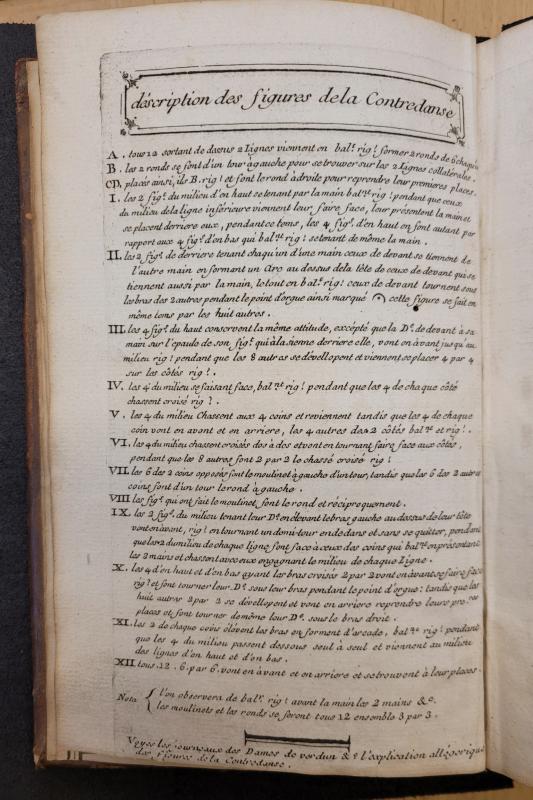 déscription des figures de la Contredanse
A. tous 12 sortant de dessus 2 Lignes viennent en bal.t rig.t former 2 ronds de 6 chaqu'un
B. les 2 ronds se font d'un tour à gauche pour se trouver sur les 2 Lignes collatérales.
CD, placés ainsi, ils B. rig.t et font le rond à droite pour reprendre leur premieres places.
I. les 2 fig.t du milieu d'en haut se tenant par la main bal.nt rig.t pendant que ceux
du milieu de la ligne inférieure viennent leur faire face, leur présentent la main et
se placent derriere eux, pendant ce tems, les 4 fig.t d'en haut en font autant par
rapport aux 4 fig.t d'en bas qui bal.nt rig.t se tenant de même la main.
II. les 2 fig.t de derriere tenant chaqu'un d'une main ceux de devant se tiennent de
l'autre main en formant un Arc au dessus de la tête de ceux de devant qui se
tiennent aussi par la main, le tout en bal.t rig.t ceux de devant tournent sous
les bras des 2 autres pendant le point d'orgue ainsi marqué 𝄐 cette figure se fait en
même tems par les huit autres.
III. les 4 fig.t du haut conservent la même attitude, excépté que la D.e de devant à sa
main sur l'epaule de son fig.t qui à la sienne derriere elle, vont en avant jusqu'au
milieu rig.t pendant que les 8 autres se dévellopent et viennent se placer 4 par 4
sur les côtés rig.t.
IV. les 4 du milieu se faisant face, bal.nt rig.t pendant que les 4 de chaque côté
chassent croisé rig.t.
V. les 4 du milieu Chassent aux 4 coins et reviennent tandis que les 4 de chaque
coin vont en avant et en arriere, les 4 autres des 2 côtés bal.nt et rig.t.
VI. les 4 du milieu chassent croisés dos à dos et vont en tournant faire face aux côtés,
pendant que les 8 autres font 2 par 2 le chassé croisé rig.t
VII. les 6 des 2 coins opposés font le moulinet à gauche d'un tour, tandis que les 6 des 2 autres
coins font d'un tour le rond à gauche.
VIII les fig.t qui ont fait le moulinet, font le rond et réciproquement.
IX. les 2 fig.t du milieu tenant leur D.e en élevant le bras gauche au dessus de leur tête
vont en avant, rig.t en tournant un demi-tour en dedans et sans se quitter, pendant
que les 2 du milieu de chaque ligne font face à ceux des coins qui bal.nt en présentant
les 2 mains et chassent avec eux en gagnant le milieu de chaque Ligne.
X. les 4 d'en haut et d'en bas ayant les bras croisés 2 par 2 vont en avant se faire face
rig.t et font tourner leur D.e sous leur bras pendant le point d'orgue: tandis que les
huit autres 2 par 2 se dévellopent et vont en arriere reprendre leurs pre.res
places et font tourner de même leur D.e sous le bras droit.
XI. les 2 de chaque coin élévent les bras en forment d'arcade, bal.nt rig.t pendant
que les 4 du milieu passent dessous seul à seul et viennent au milieu
des lignes d'en haut et d'en bas.
XII tous 12. 6 par 6 vont en avant et en arriere et se trouvent à leur places.
Nota { l'on observera de bal.t rig.t avant la main les 2 mains &c.
les moulinets et les ronds se feront tous 12 ensemble 3 par 3.
Voyes les journeaux des Dames de verdun &.t l'explication allégorique
des figures de la Contredanse.